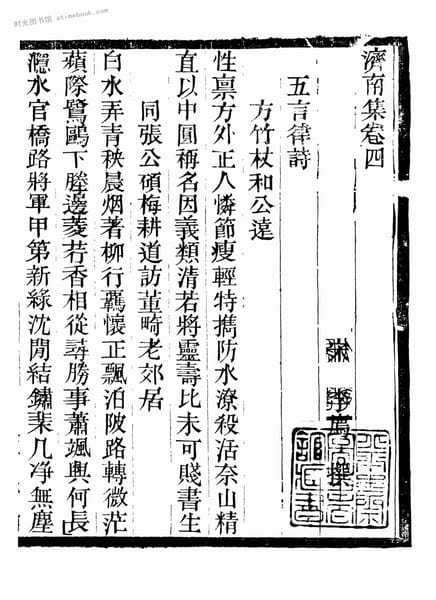 时光图书馆 atimebook.com
濟南集卷四
宋 李廌 撰
五言律詩
方竹杖和公遠
性禀方外正人憐節瘦輕特擕防水潦殺活奈山精
直以中圓稱名因義類清若將靈壽比未可賤書生
同張公碩梅耕道訪董畸老郊居
白水弄青秧晨烟著柳行羈懷正飄泊陂路轉微茫
蘋際鷺鷗下塍邊菱荇香相從尋勝事蕭颯興何長
瀍水官橋路將軍甲第新綠沈閒結鏽棐几凈無塵